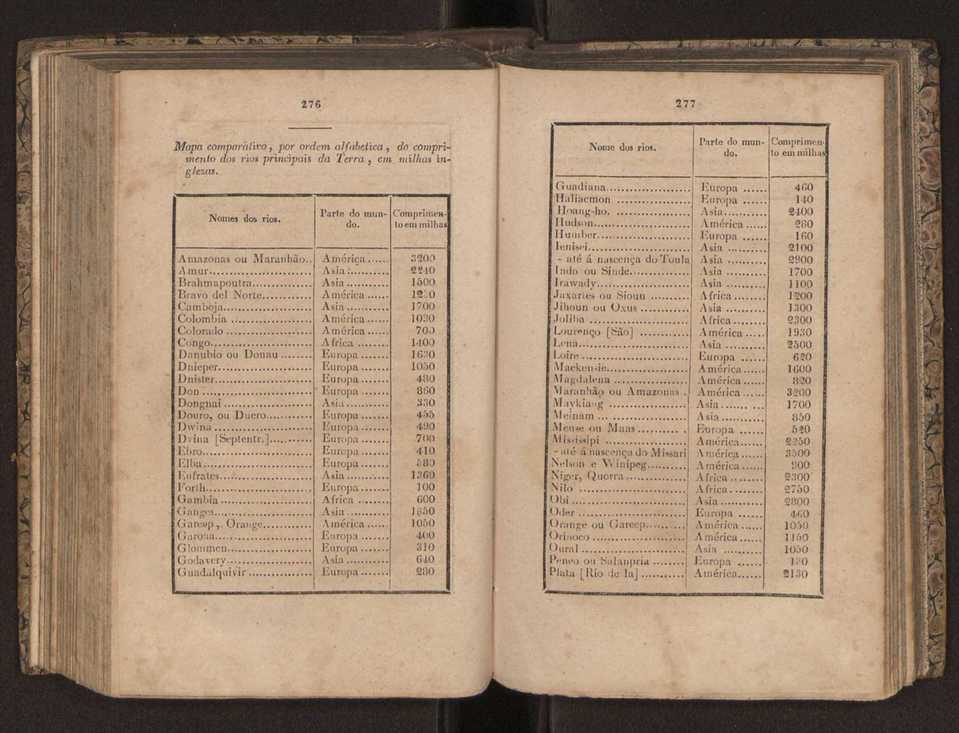 276
Mapa comparativo, por ordem alfabetica, do compri-
mento dos rios principais da Terra, em milhas in-
glezas.
Nomes dos rios. Parte do mun- Comprimen-
do. to em milhas
Amazonas ou Maranhão.. América...... 3200
Amur.......... Asia.......... 2240
Brahmapoutra.......... Asia.......... 1500
Bravo del Norte.......... América......
Camboja.......... Asia.......... 1700
Colombia .......... América...... 1030
Colorado .......... América...... 700
Congo.......... Africa ........ 1400
Danubio ou Donau ........ Europa....... 1630
Dnieper.......... Europa....... 1050
Dnister.......... Europa....... 480
Don .......... Europa....... 860
Dongnai .......... Asia.......... 330
Douro, ou Duero.......... Europa....... 455
Dwina .......... Europa....... 490
Dvina [Septentr.].......... Europa....... 700
Ebro.......... Europa....... 410
Elba .......... Europa....... 580
Eufrates.......... Asia.......... 1360
Forth.......... Europa....... 100
Gambia .......... Africa ........ 600
Ganges.......... Asia..........
Gareep, Orange.......... América...... 1050
Garona.......... Europa....... 400
Glommen.......... Europa....... 310
Godavery.......... Asia.......... 640
Guadalquivir .......... Europa....... 280
277
Nome dos rios. Parte do mun- Comprimen-
do. to em milhas
Guadiana.......... Europa ...... 460
Haliacmon .......... Europa ...... 140
Hoang-ho. .......... Asia.......... 2400
Hudson.......... América...... 280
Humber.......... Europa ...... 160
Ienisei.......... Asia .......... 2100
- até á nascença do Toula Asia .......... 2900
Indo ou Sinde.......... Asia .......... 1700
Irawady.......... Asia .......... 1100
Jaxartes ou Sioun .......... Africa........ 1200
Jihoun ou Oxus .......... Asia .......... 1300
Joliba .......... Africa........ 2300
Lourenço [São] .......... América ..... 1930
Lena.......... Asia .......... 2500
Loire.......... Europa ...... 620
Macken-ie.......... América...... 1600
Magdalena .......... América ..... 820
Maranhão ou Amazonas . América...... 3200
Maykiang .......... Asia .......... 1700
Meinam .......... Asia.......... 850
Meuse ou Maas .......... Europa ...... 520
Mississipi .......... América...... 2250
- até á nascença do Missuri América...... 3500
Nelson e Winipeg.......... América...... 900
Niger, Quorra.......... Africa........ 2300
Nilo .......... Africa........ 2750
Obi .......... Asia .......... 2800
Oder .......... Europa ...... 460
Orange ou Gareep.......... América...... 1050
Orinoco .......... América...... 1150
Oural .......... Asia .......... 1050
Peneo ou Salanpria ........ Europa ......
Plata [Rio de la] .......... América...... 2130